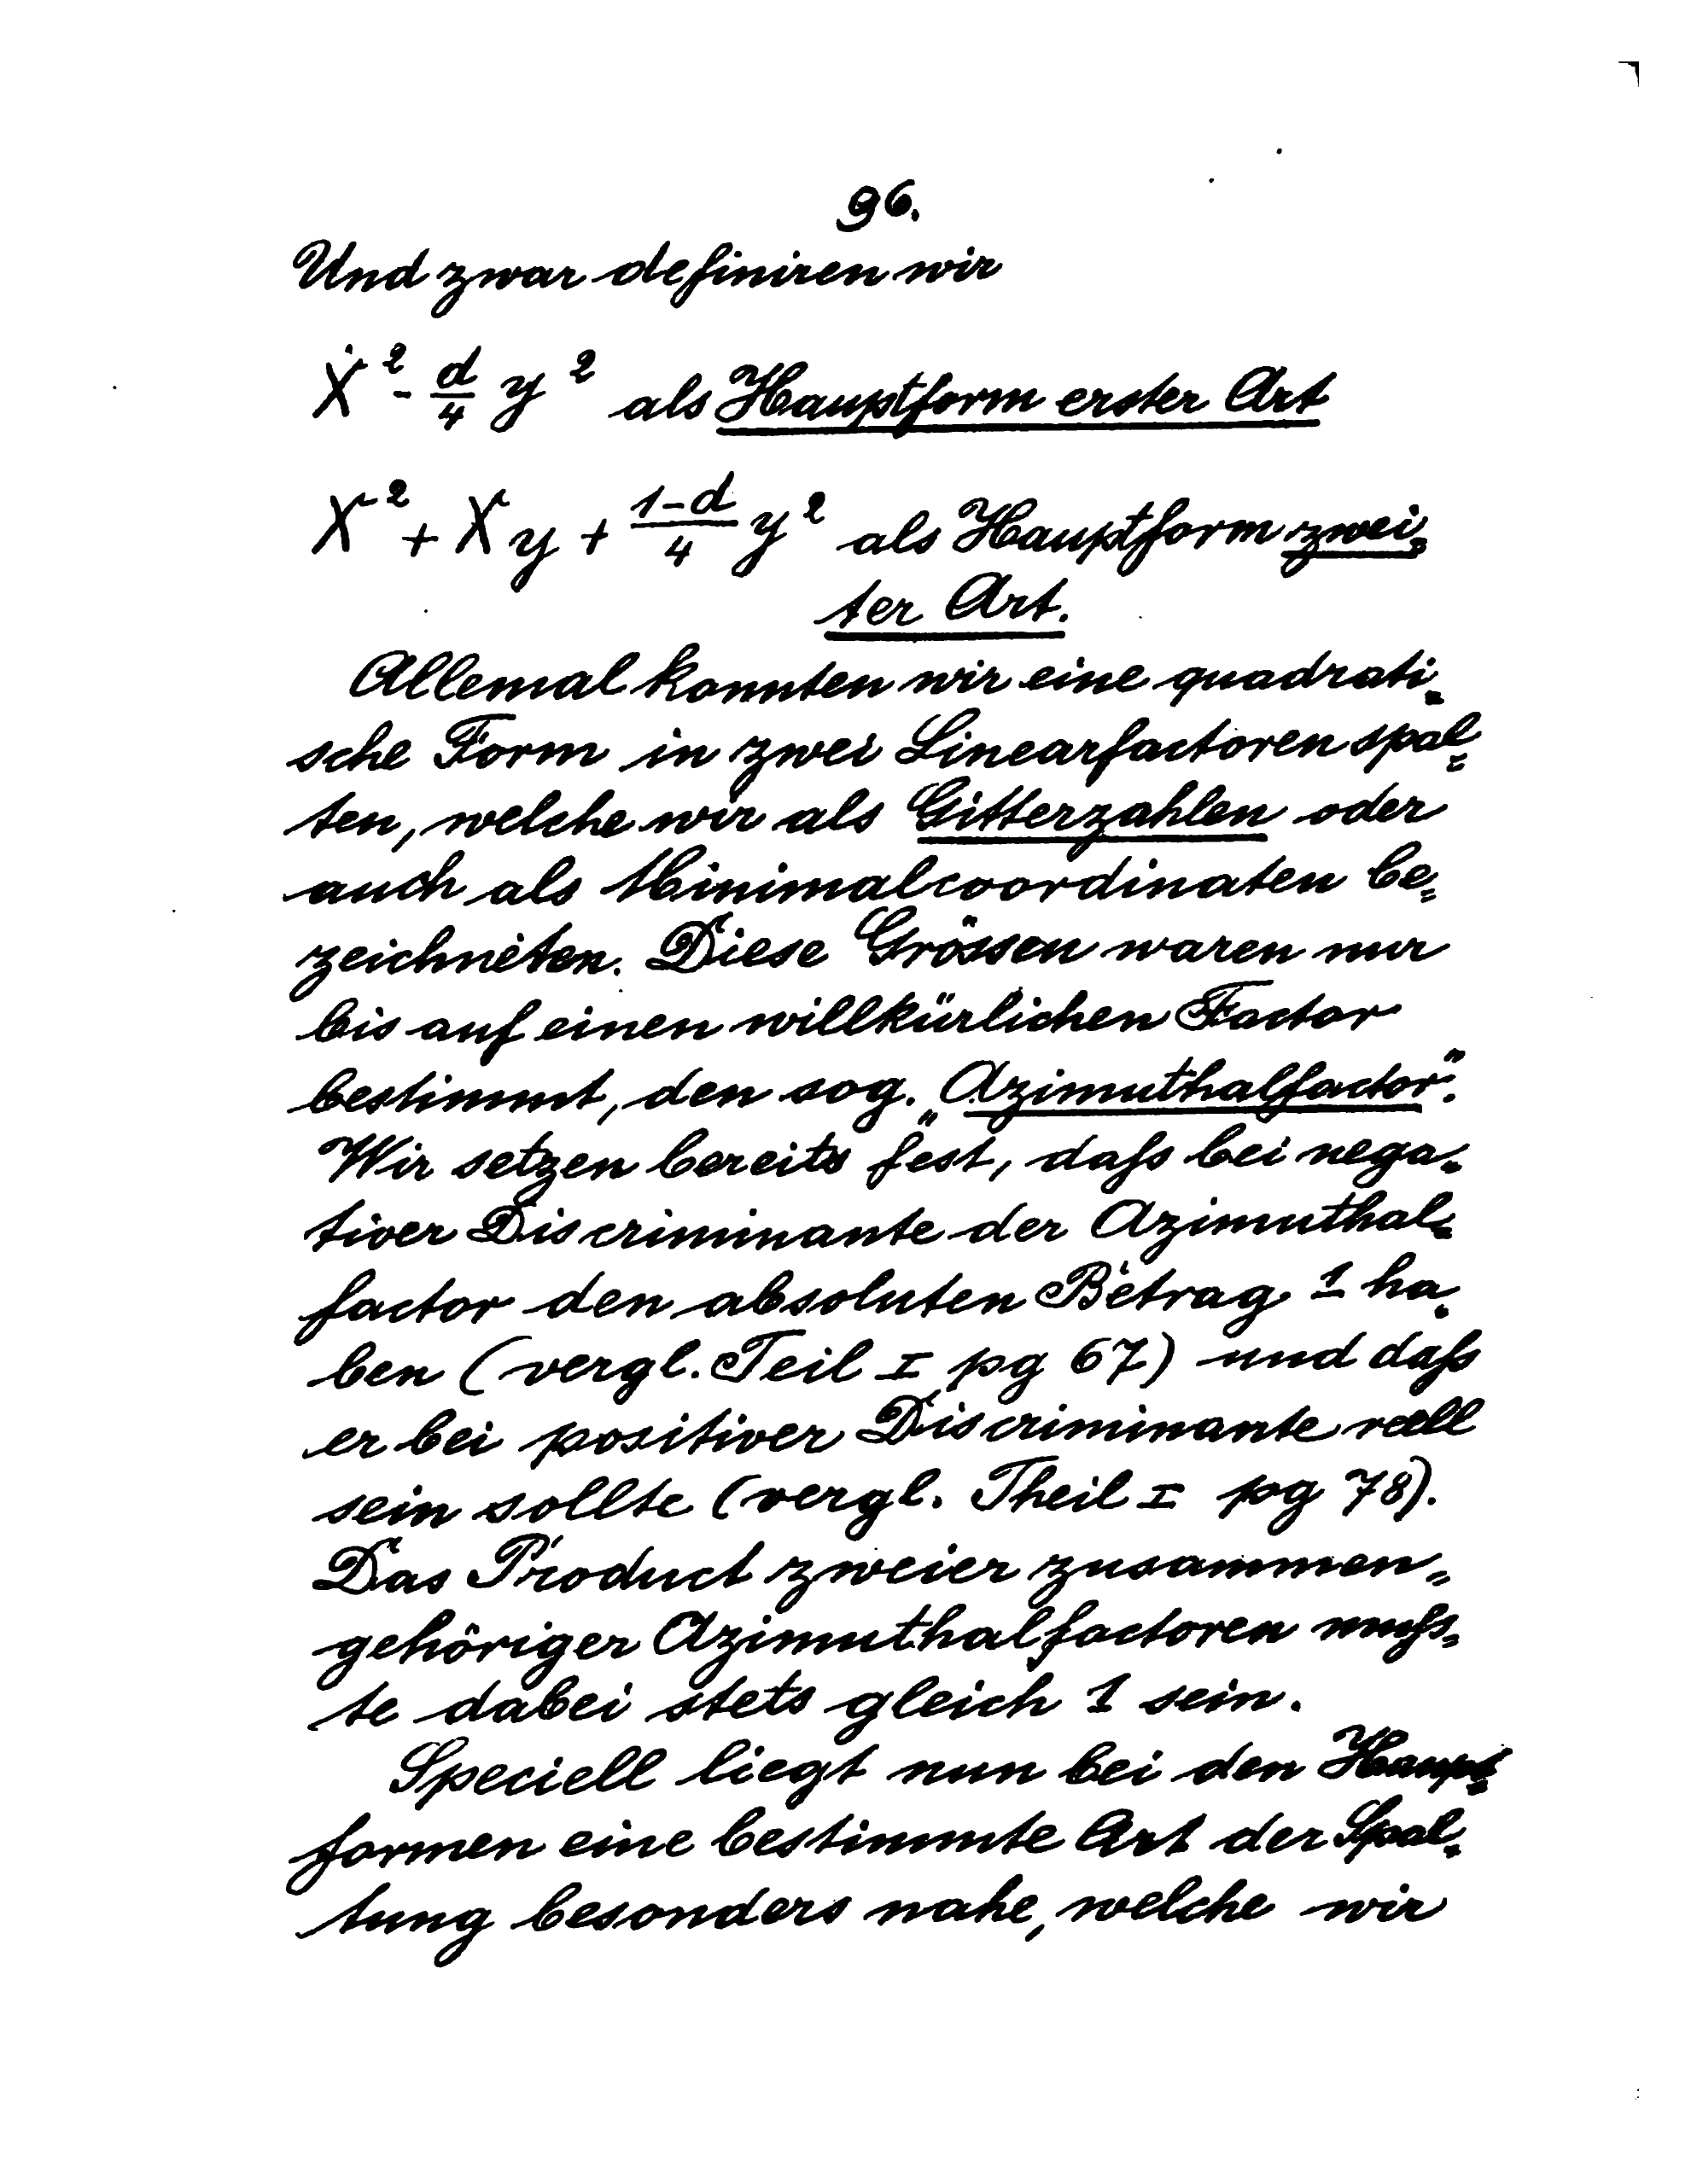 96.
Und zwar definiren wir
X² - d/4 y² als Hauptform erster Art
X² + Xy + (1-d)/4 y² als Hauptform zwei-
ter Art.
Allemal konnten wir eine quadrati-
sche Form in zwei Linearfactoren spal-
ten, welche wir als Gitterzahlen oder
auch als Minimalcoordinaten be-
zeichneten. Diese Grössen waren nur
bis auf einen willkürlichen Factor
bestimmt, den sog. „Azimuthalfactor".
Wir setzen bereits fest, daſs bei nega-
tiver Discriminante der Azimuthal-
factor den absoluten Betrag 1 ha-
ben (vergl. Teil I pg 67) und daſs
er bei positiver Discriminante reell
sein sollte (vergl. Theil I pg 78).
Das Product zweier zusammen-
gehöriger Azimuthalfactoren muſs-
te dabei stets gleich 1 sein.
Speciell liegt nun bei den Haupt-
formen eine bestimmte Art der Spal-
tung besonders nahe, welche wir